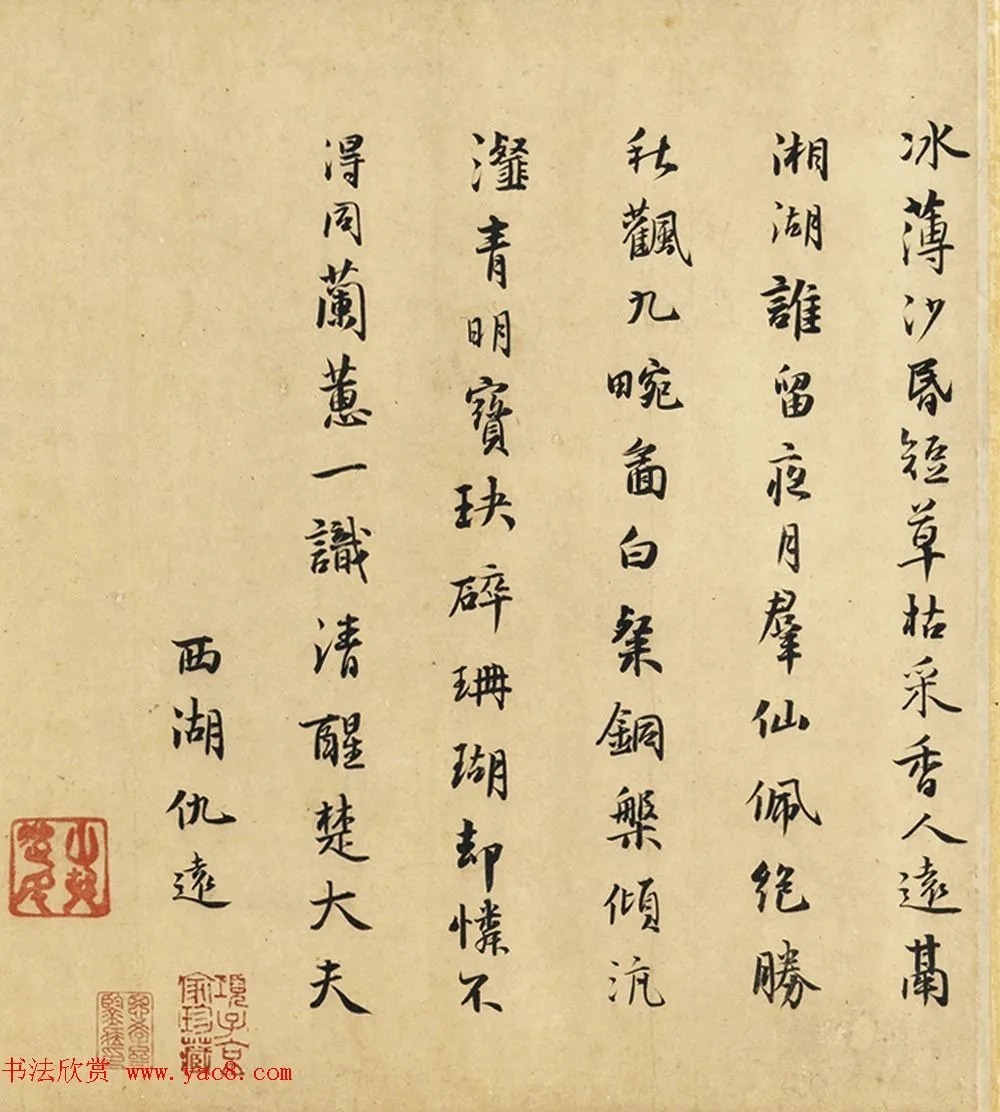 冰薄沙昏短草枯采香人遠鬲
湘湖誰留夜月羣仙佩絶勝
秋飌九畹啚白粲銅槃傾沆
瀣青明寶玦碎珊瑚却憐不
得同蘭蕙一識清醒楚大夫
西湖仇遠
項子京
家珍藏
书法欣赏 www.yac8.com